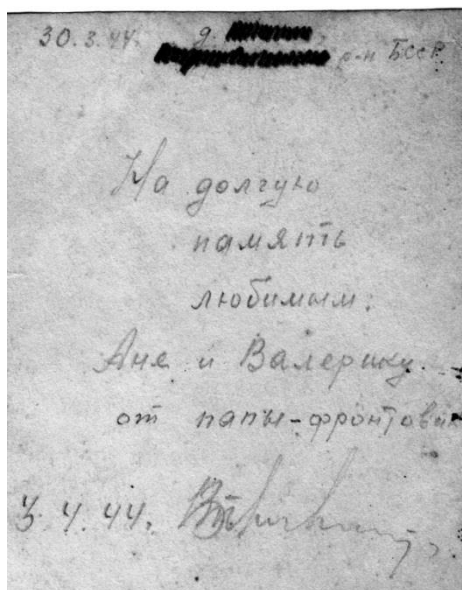 30.3.44. д.
р-н БССР
На долгую
память
любимым:
Ане и Валерику
от папы-фронтовик
3.4.44.